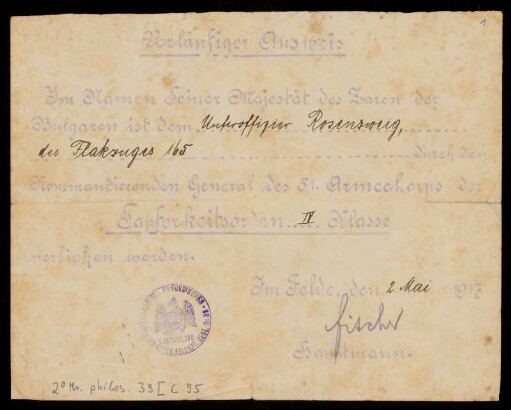 1
Vorläufiger Ausweis
Im Namen Seiner Majestät des Zaren der
Bulgaren ist dem Unteroffizier Rosenzweig,
des Flakzuges 165 durch den
Kommandierenden General des 61. Armeekorps der
Tapferkeitsorden IV Klasse
verliehen worden.
Im Felde, den 2 Mai 1917
Fischer
Hauptmann.
2° Ms. philos. 39 [ C 95